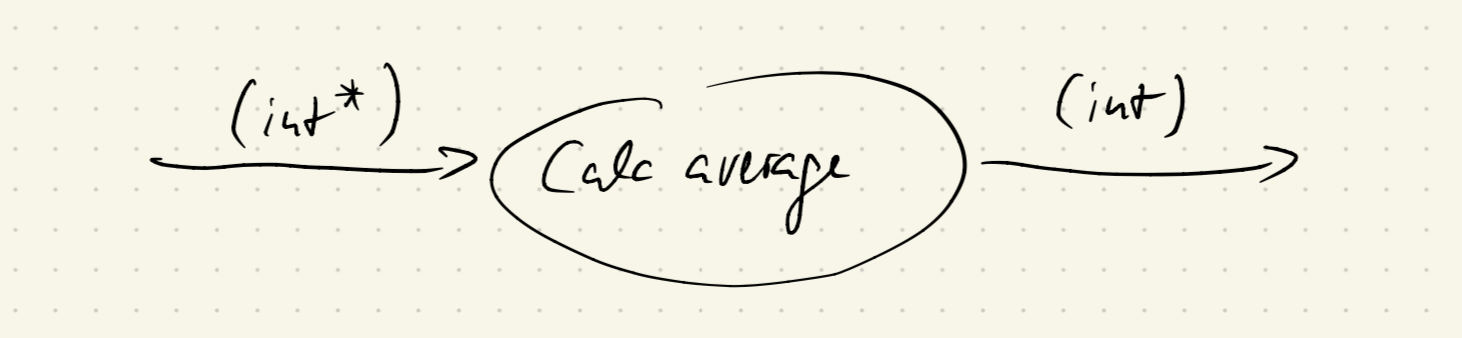 (int*)
Calc average
(int)